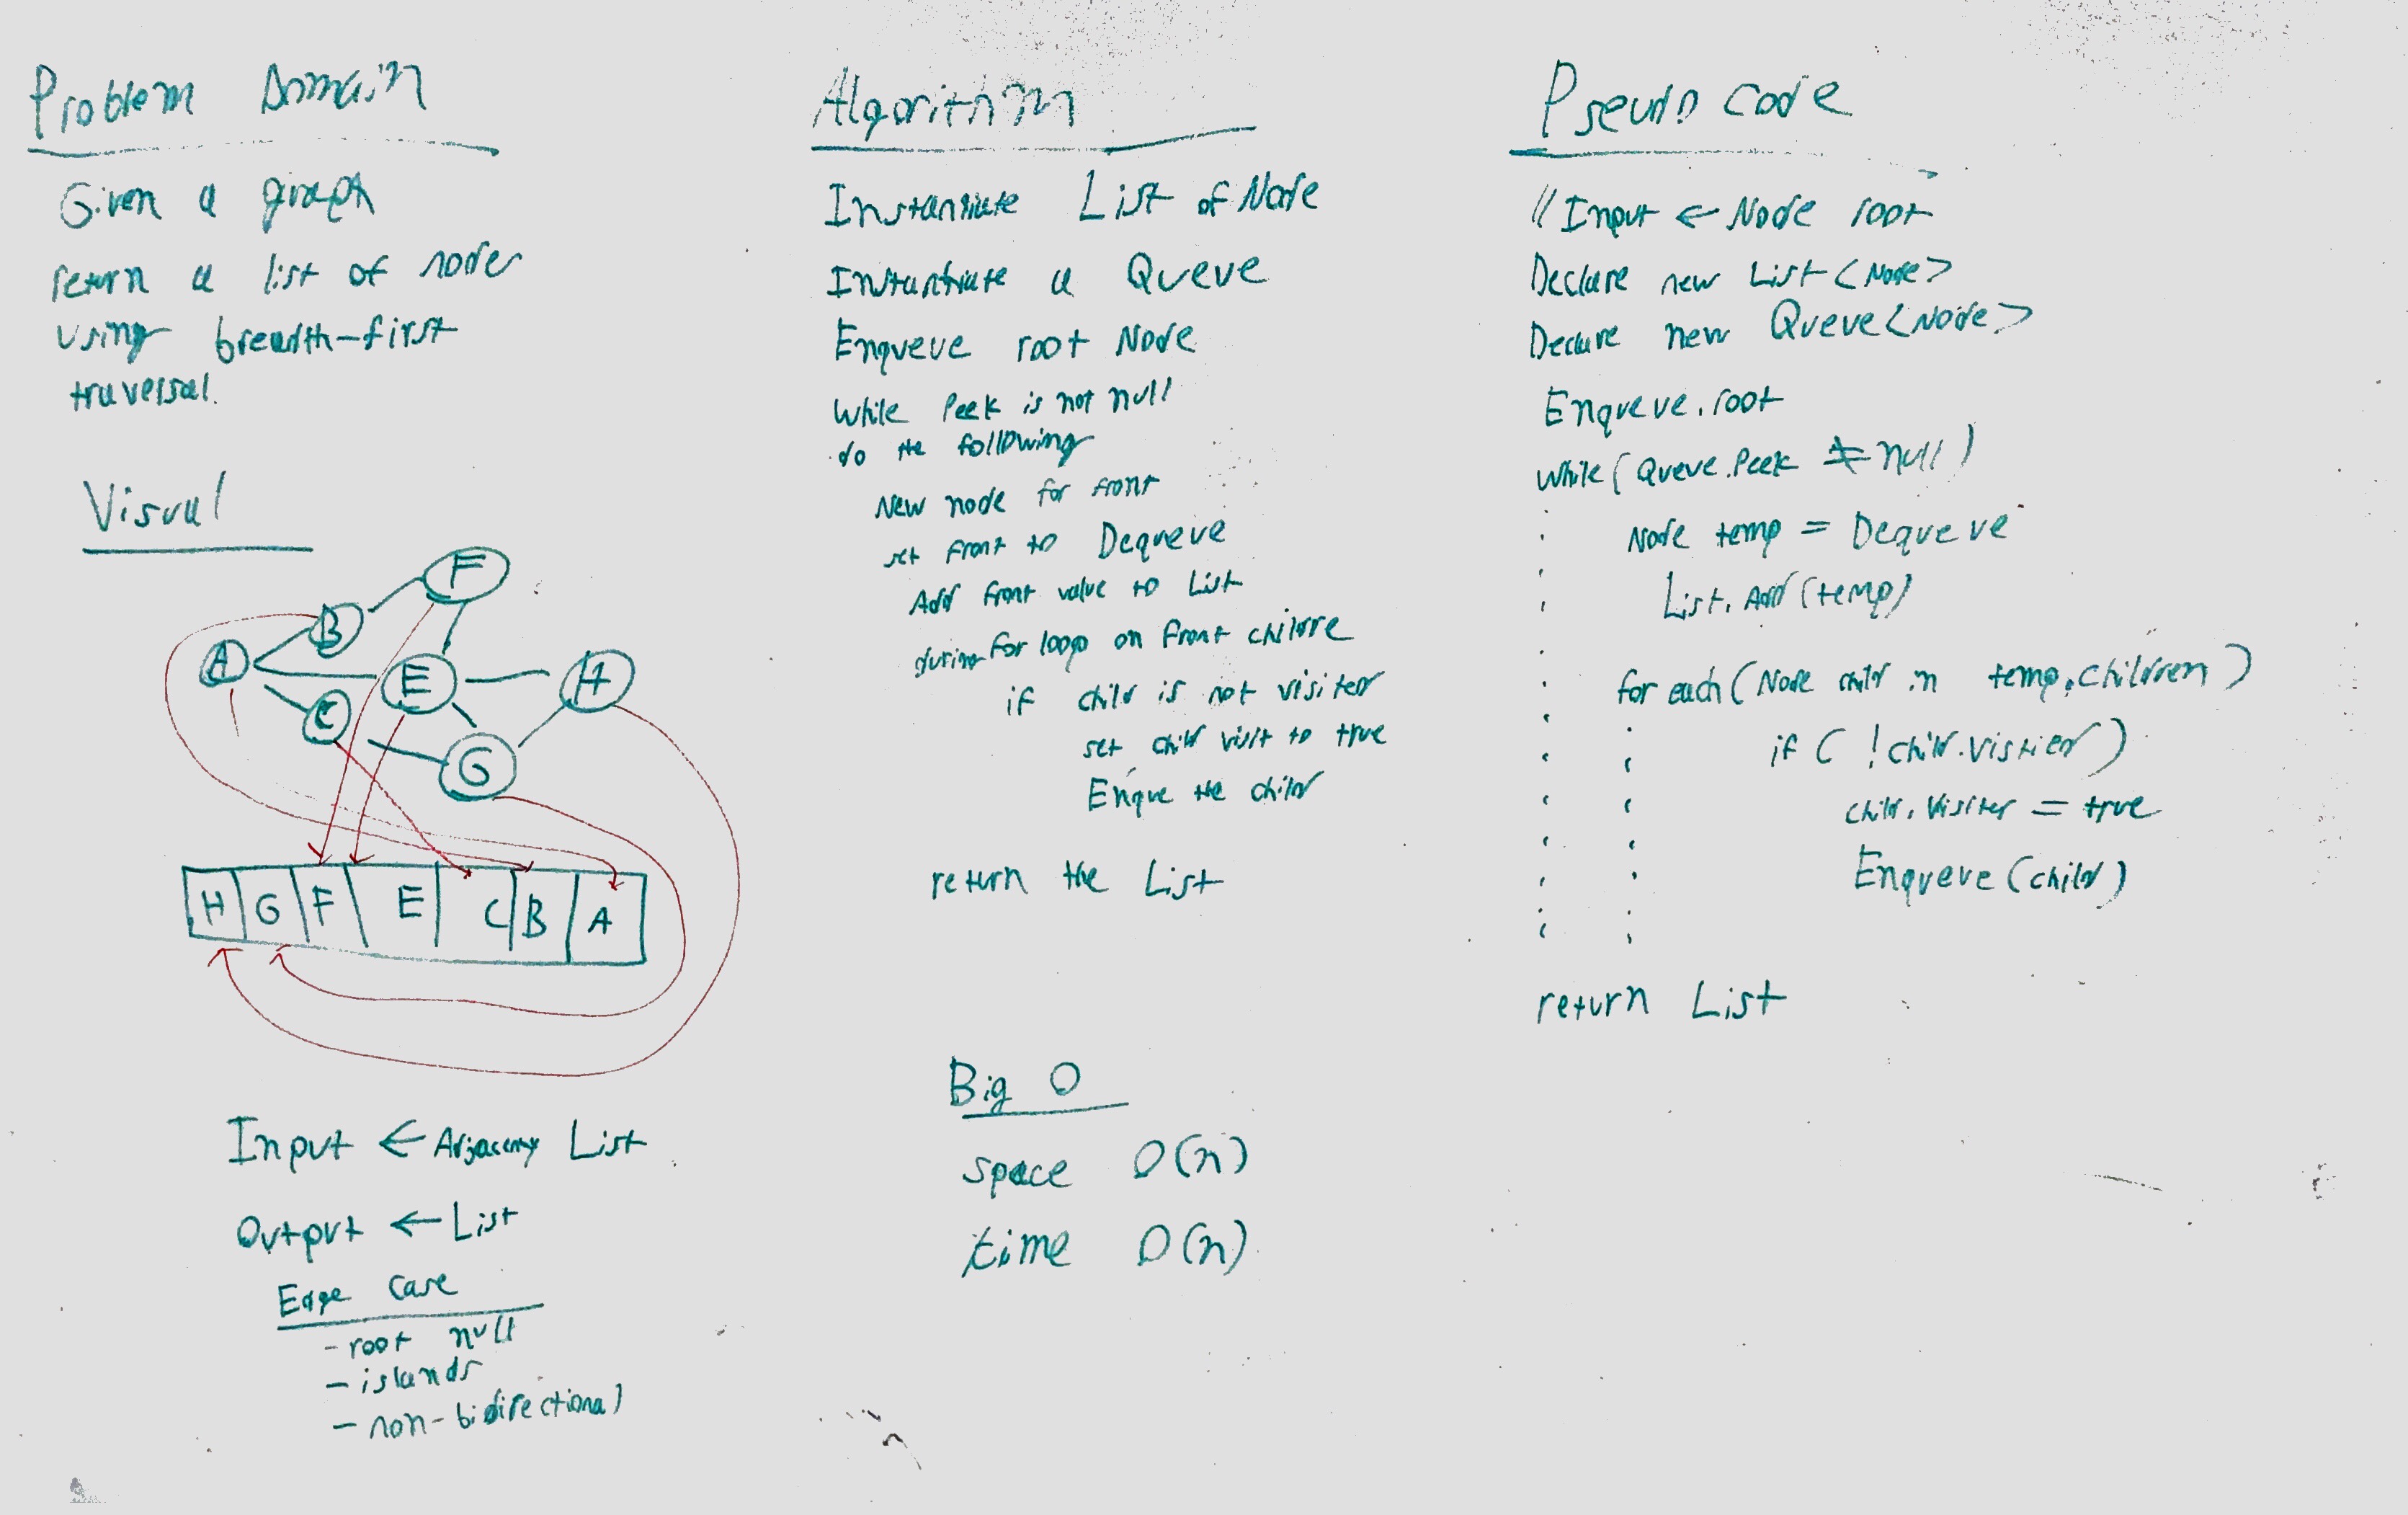 Problem Domain
Given a graph
return a list of nodes
using breadth-first
traversal.
Visual
F
B
A
E
H
C
G
H G F E C B A
Input ← Adjacency List
Output ← List
Edge Case
- root null
- islands
- non-bidirectional
Algorithm
Instantiate List of Node
Instantiate a Queue
Enqueue root Node
While Peek is not null
do the following
New node for front
set front to Dequeue
Add front value to List
during for loop on front childre
if child is not visited
set child visit to true
Enque the child
return the List
Big O
space O(n)
time O(n)
Pseudo code
// Input ← Node root
Declare new List <Node>
Declare new Queue <Node>
Enqueue.root
while (Queue.Peek ≠ null)
Node temp = Dequeue
List.Add(temp)
for each (Node child in temp.children)
if ( !child.vistied)
child.Visited = true
Enqueue (child)
return List